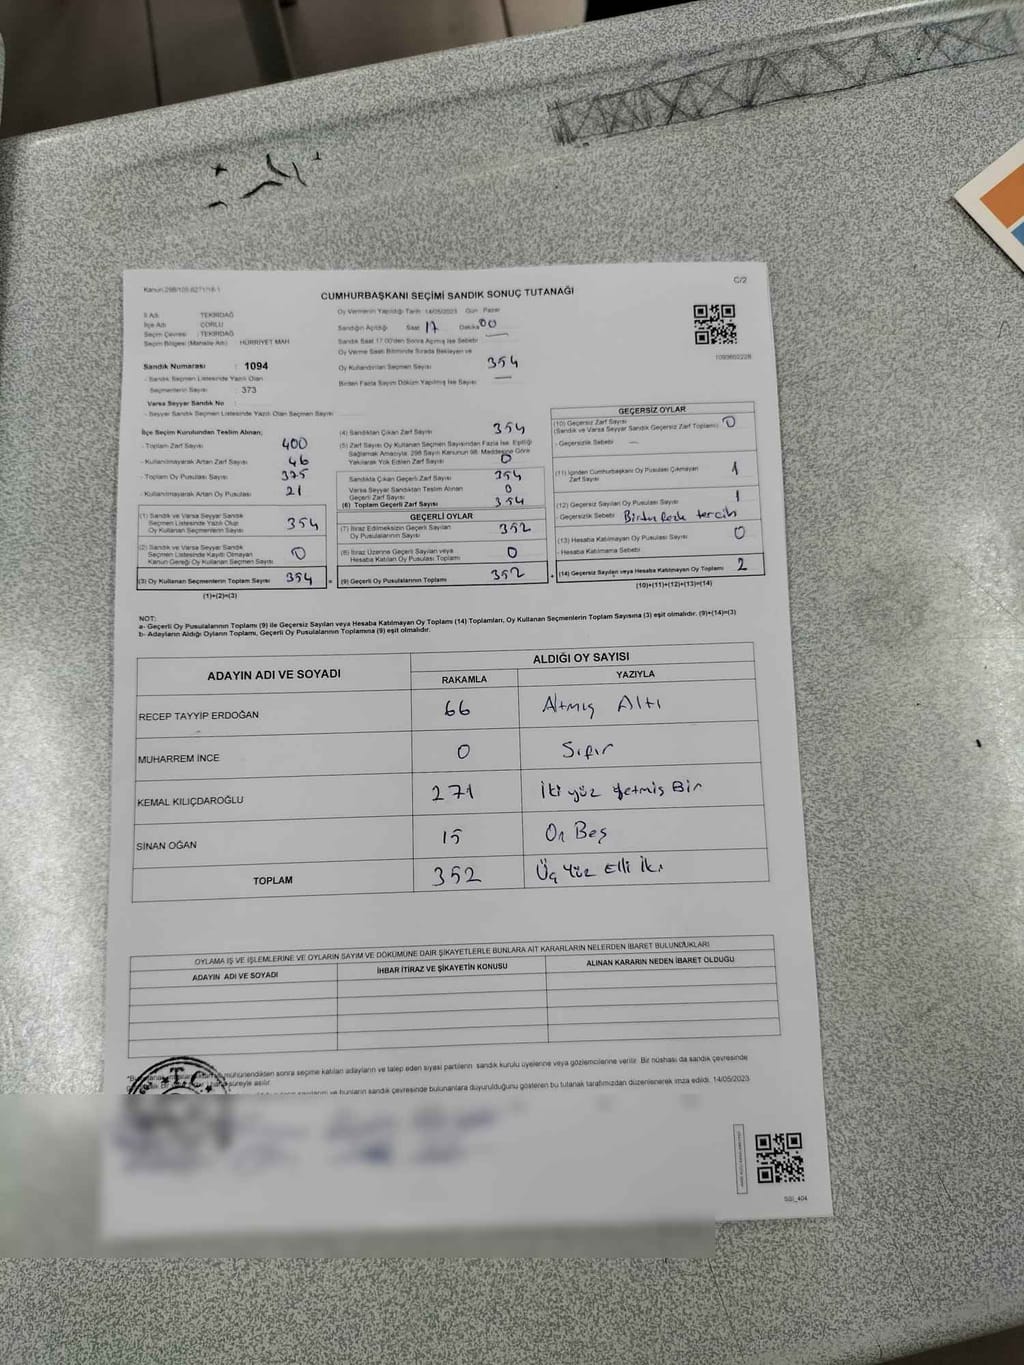 Kanun 298/105-6271/16-1
C/2
CUMHURBAŞKANI SEÇİMİ SANDIK SONUÇ TUTANAĞI
İl Adı : TEKİRDAĞ
İlçe Adı : ÇORLU
Seçim Çevresi : TEKİRDAĞ
Seçim Bölgesi (Mahalle Adı) HÜRRİYET MAH
Sandık Numarası : 1094
- Sandık Seçmen Listesinde Yazılı Olan
Seçmenlerin Sayısı : 373
Varsa Seyyar Sandık No
- Seyyar Sandık Seçmen Listesinde Yazılı Olan Seçmen Sayısı
Oy Vermenin Yapıldığı Tarih 14/05/2023 Gün Pazar
Sandığın Açıldığı Saat 17 Dakika 00
Sandık Saat 17:00'den Sonra Açılmış İse Sebebi
Oy Verme Saati Bitiminde Sırada Bekleyen ve
Oy Kullandırılan Seçmen Sayısı 354
Birden Fazla Sayım Döküm Yapılmış İse Sayısı —
1093602228
İlçe Seçim Kurulundan Teslim Alınan;
- Toplam Zarf Sayısı 400
- Kullanılmayarak Artan Zarf Sayısı 46
- Toplam Oy Pusulası Sayısı 375
- Kullanılmayarak Artan Oy Pusulası 21
(1) Sandık ve Varsa Seyyar Sandık
Seçmen Listesinde Yazılı Olup
Oy Kullanan Seçmenlerin Sayısı 354
(2) Sandık ve Varsa Seyyar Sandık
Seçmen Listesinde Kayıtlı Olmayan
Kanun Gereği Oy Kullanan Seçmen Sayısı 0
(3) Oy Kullanan Seçmenlerin Toplam Sayısı 354
(1)+(2)=(3)
(4) Sandıktan Çıkan Zarf Sayısı 354
(5) Zarf Sayısı Oy Kullanan Seçmen Sayısından Fazla İse, Eşitliği
Sağlamak Amacıyla, 298 Sayılı Kanunun 98. Maddesine Göre
Yakılarak Yok Edilen Zarf Sayısı 0
Sandıkta Çıkan Geçerli Zarf Sayısı 354
Varsa Seyyar Sandıktan Teslim Alınan
Geçerli Zarf Sayısı 0
(6) Toplam Geçerli Zarf Sayısı 354
GEÇERLİ OYLAR
(7) İtiraz Edilmeksizin Geçerli Sayılan
Oy Pusulalarının Sayısı 352
(8) İtiraz Üzerine Geçerli Sayılan veya
Hesaba Katılan Oy Pusulası Toplamı 0
= (9) Geçerli Oy Pusulalarının Toplamı 352
GEÇERSİZ OYLAR
(10) Geçersiz Zarf Sayısı 0
(Sandık ve Varsa Seyyar Sandık Geçersiz Zarf Toplamı)
- Geçersizlik Sebebi —
(11) İçinden Cumhurbaşkanı Oy Pusulası Çıkmayan
Zarf Sayısı 1
(12) Geçersiz Sayılan Oy Pusulası Sayısı 1
Geçersizlik Sebebi Birden fazla tercih
(13) Hesaba Katılmayan Oy Pusulası Sayısı 0
- Hesaba Katılmama Sebebi
+ (14) Geçersiz Sayılan veya Hesaba Katılmayan Oy Toplamı 2
(10)+(11)+(12)+(13)=(14)
NOT:
a- Geçerli Oy Pusulalarının Toplamı (9) ile Geçersiz Sayılan veya Hesaba Katılmayan Oy Toplamı (14) Toplamları, Oy Kullanan Seçmenlerin Toplam Sayısına (3) eşit olmalıdır. (9)+(14)=(3)
b- Adayların Aldığı Oyların Toplamı, Geçerli Oy Pusulalarının Toplamına (9) eşit olmalıdır.
ADAYIN ADI VE SOYADI
ALDIĞI OY SAYISI
RAKAMLA YAZIYLA
RECEP TAYYİP ERDOĞAN 66 Altmış Altı
MUHARREM İNCE 0 Sıfır
KEMAL KILIÇDAROĞLU 271 İki yüz Yetmiş Bir
SİNAN OĞAN 15 On Beş
TOPLAM 352 Üç Yüz Elli İki
OYLAMA İŞ VE İŞLEMLERİNE VE OYLARIN SAYIM VE DÖKÜMÜNE DAİR ŞİKAYETLERLE BUNLARA AİT KARARLARIN NELERDEN İBARET BULUNDUKLARI
ADAYIN ADI VE SOYADI İHBAR İTİRAZ VE ŞİKAYETİN KONUSU ALINAN KARARIN NEDEN İBARET OLDUĞU
mühürlendikten sonra seçime katılan adayların ve talep eden siyasi partilerin sandık kurulu üyelerine veya gözlemcilerine verilir. Bir nüshası da sandık çevresinde
süreyle asılır.
ve bunların sandık çevresinde bulunanlara duyurulduğunu gösteren bu tutanak tarafımızdan düzenlenerek imza edildi. 14/05/2023
T.C.
SGI_404